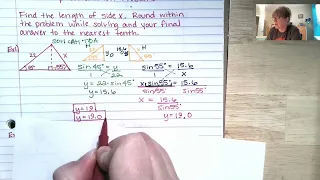 Find the length of side x. Round within
the problem while solving and your final
answer to the nearest tenth.
SOH CAH TOA
Ex1
22 x
45° 55°
H 22 y
45°
15.6 H
55°
sin45° = y sin55° = 15.6
1 22 1 x
y = 22·sin45° x·sin55° = 15.6
y = 15.6 sin55° sin55°
x = 15.6
sin55°
y = 19
y = 19.0 y = 19.0